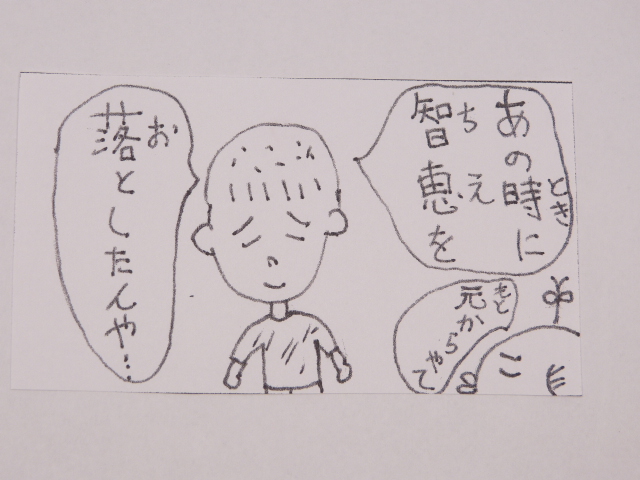 あの時に
とき
智恵を
ちえ
落としたんや…
お
元から
もと
やて